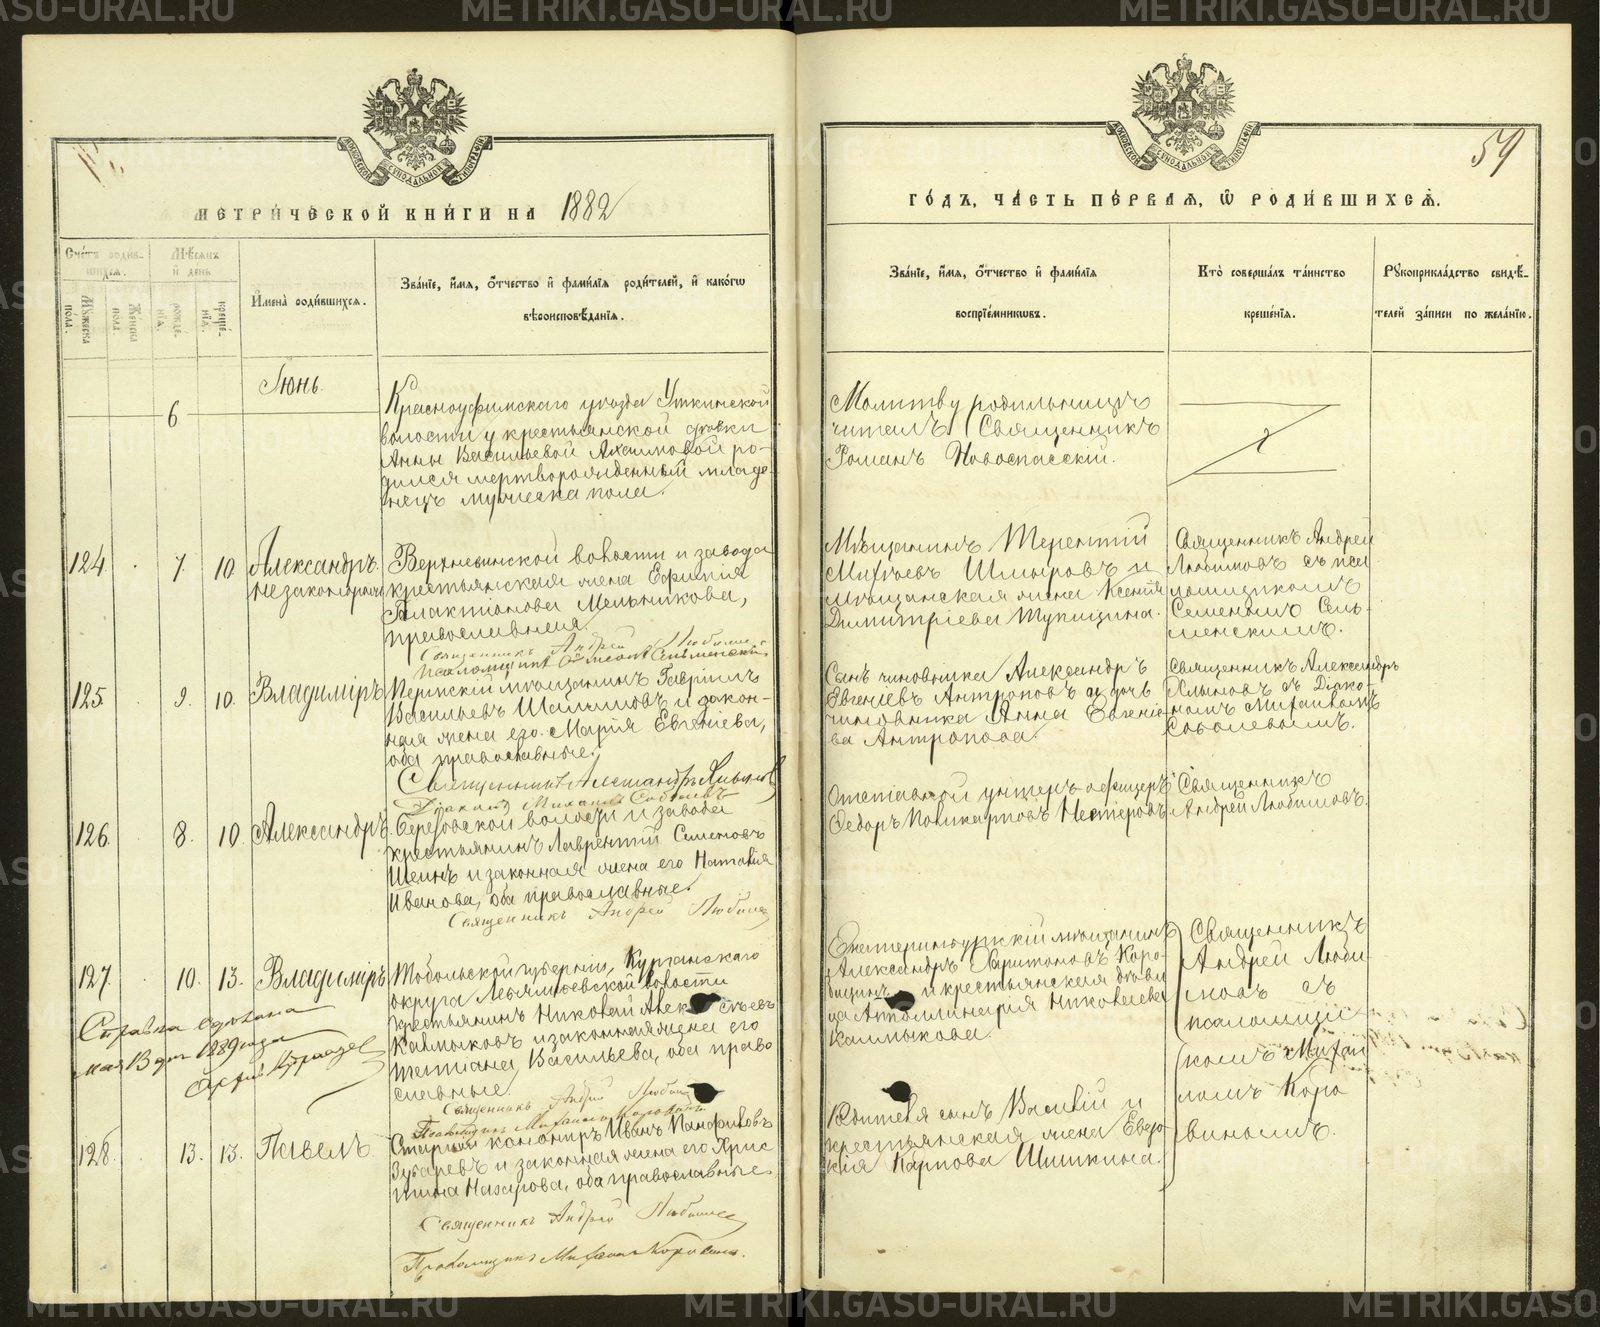 METRIKI.GASO-URAL.RU
МЕТРИ́ЧЕСКОЙ КНИ́ГИ НА 1882
ГО́ДЪ, ЧА́СТЬ ПЕ́РВАЯ, Ѡ РОДИ́ВШИХСЯ.
59
МОСКОВСКОЙ СѴНОДАЛЬНОЙ ТИПОГРАФІИ
Сче́тъ родив-
шихся.
Мꙋжеска пола.
Женска пола.
Мѣсяцъ
и день
рожде-
нія.
креще-
нія.
Имена̀ роди́вшихся.
Зва́ніе, и́мя, о́тчество и фами́лія роди́телей, и како́гѡ
вѣроисповѣ́данія.
Зва́ніе, и́мя, о́тчество и фами́лія
воспріе́мникѡвъ.
Кто̀ соверша́лъ та́инство
креще́нія.
Рꙋкоприкла́дство свидѣ́-
телей за́писи по жела́нію.
Іюнь.
6
Красноуфимскаго уезда Уткинской
волости у крестьянской девки
Анны Васильевой ро-
дился мертворожденный младе-
нецъ мужеска пола.
Молитву родильнице
читалъ Священникъ
Романъ Новоспасскій.
124 7. 10 Александръ
незаконорож
Верхневинской волости и завода
крестьянская жена
Галактионова Мельникова,
православная
Священникъ Андрей Любимов
псаломщикъ Симеонъ Сельменскій
Мѣщанинъ Терентій
Шмыровъ и
мѣщанская жена Ксенія
Димитріева Тупицина.
Священникъ Андрей
Любимовъ съ пса
ломщикомъ
Семеномъ Сель-
менскимъ.
125 9. 10. Владиміръ
Пермскій мѣщанинъ Гавріилъ
Васильевъ и закон-
ная жена его Марія Евгеніева,
оба православные.
Священникъ Александръ Хлыновъ
Діаконъ Михаилъ Соболевъ
Сынъ чиновника Александръ
Евгеніевъ Антроповъ и дочь
чиновника Анна Евгеніе-
ва Антропова.
Священникъ Александръ
Хлыновъ съ Діако-
номъ Михаиломъ
Соболевымъ.
126. 8. 10. Александръ
Березовской волости и завода
крестьянинъ Лаврентій Семеновъ
Шеинъ и законная жена его Наталія
Иванова, оба православные.
Священникъ Андрей Любимов
Отставной унтеръ офицеръ
Федоръ Поликарповъ Нестеровъ
Священникъ
Андрей Любимовъ.
127. 10. 13. Владиміръ
Тобольской губерніи, Курганскаго
округа волости
крестьянинъ Николай Алексеевъ
Калмыковъ и законная жена его
Татіана Васильева, оба право
славные.
Священникъ Андрей Любимов
Псаломщикъ Михаилъ Коровинъ
Справка сделана
мая 13 дня 1889 года
Екатеринбургскій мѣщанинъ
Александръ Харитоновъ Коро-
и крестьянская девица
Апполлинарія Николаева
Калмыкова.
Священникъ
Андрей Люби
мовъ съ
псаломщи
комъ Михаи
ломъ Коро
винымъ.
128. 13. 13. Павелъ
Старшій канониръ Иванъ Панфиловъ
Зубаревъ и законная жена его Хрис
тина Назарова, оба православные
Священникъ Андрей Любимов
Псаломщикъ Михаилъ Коровинъ.
сынъ Василій и
крестьянская жена Евдо-
кія Карпова Шишкина.